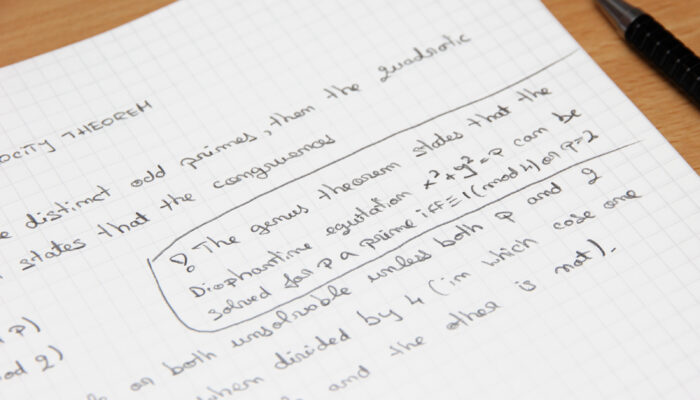 OCITY THEOREM
e distinct odd primes, then the quadratic
states that the congruences
! The genus theorem states that the
Diophantine equtation x²+y²=p can be
solved for p a prime iff≡1(mod 4) or p=2
p)
od 2)
or both unsolvable unless both p and 2
when divided by 4 (in which case one
and the other is not).